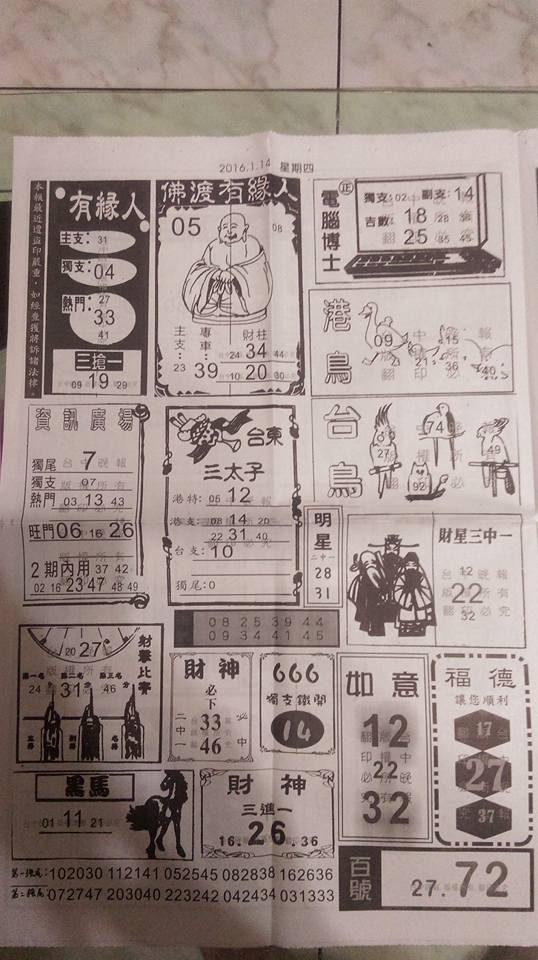 2016.1.14 星期四
本報最近遭盜印嚴重，如經查獲將訴諸法律。
有緣人
主支：31
獨支：04
熱門：27
33
41
三搶一
09 19 29
佛渡有緣人
05
08
主支：23
專車：39
財柱
24 34 44
10 20 30
電腦博士
正
獨支：02 副支：14
吉數：18 28 38
25 35 45
港鳥
09 15
21 36 40
台鳥
27 74 49
92
資訊廣場
獨尾 7
獨支 07
熱門 03 13 43
旺門 06 16 26
2期內用 37 42
02 16 23 47 48 49
台東
三太子
港特：05 12
港支：08 14 20
22 31 40
台支：10
獨尾：0
明星
二中一
28
31
財星三中一
12
22
32
08 25 39 44
09 34 41 45
射擊比賽
20 27
第一名 第二名 第三名
24 31 46
財神
必下
二中一
33
46
必中
666
獨支鐵開
14
如意
12
22
32
福德
讓您順利
17
27
37
黑馬
01 11 21
財神
三進一
16.26.36
百號
27.72
102030 112141 052545 082838 162636
072747 203040 223242 042434 031333